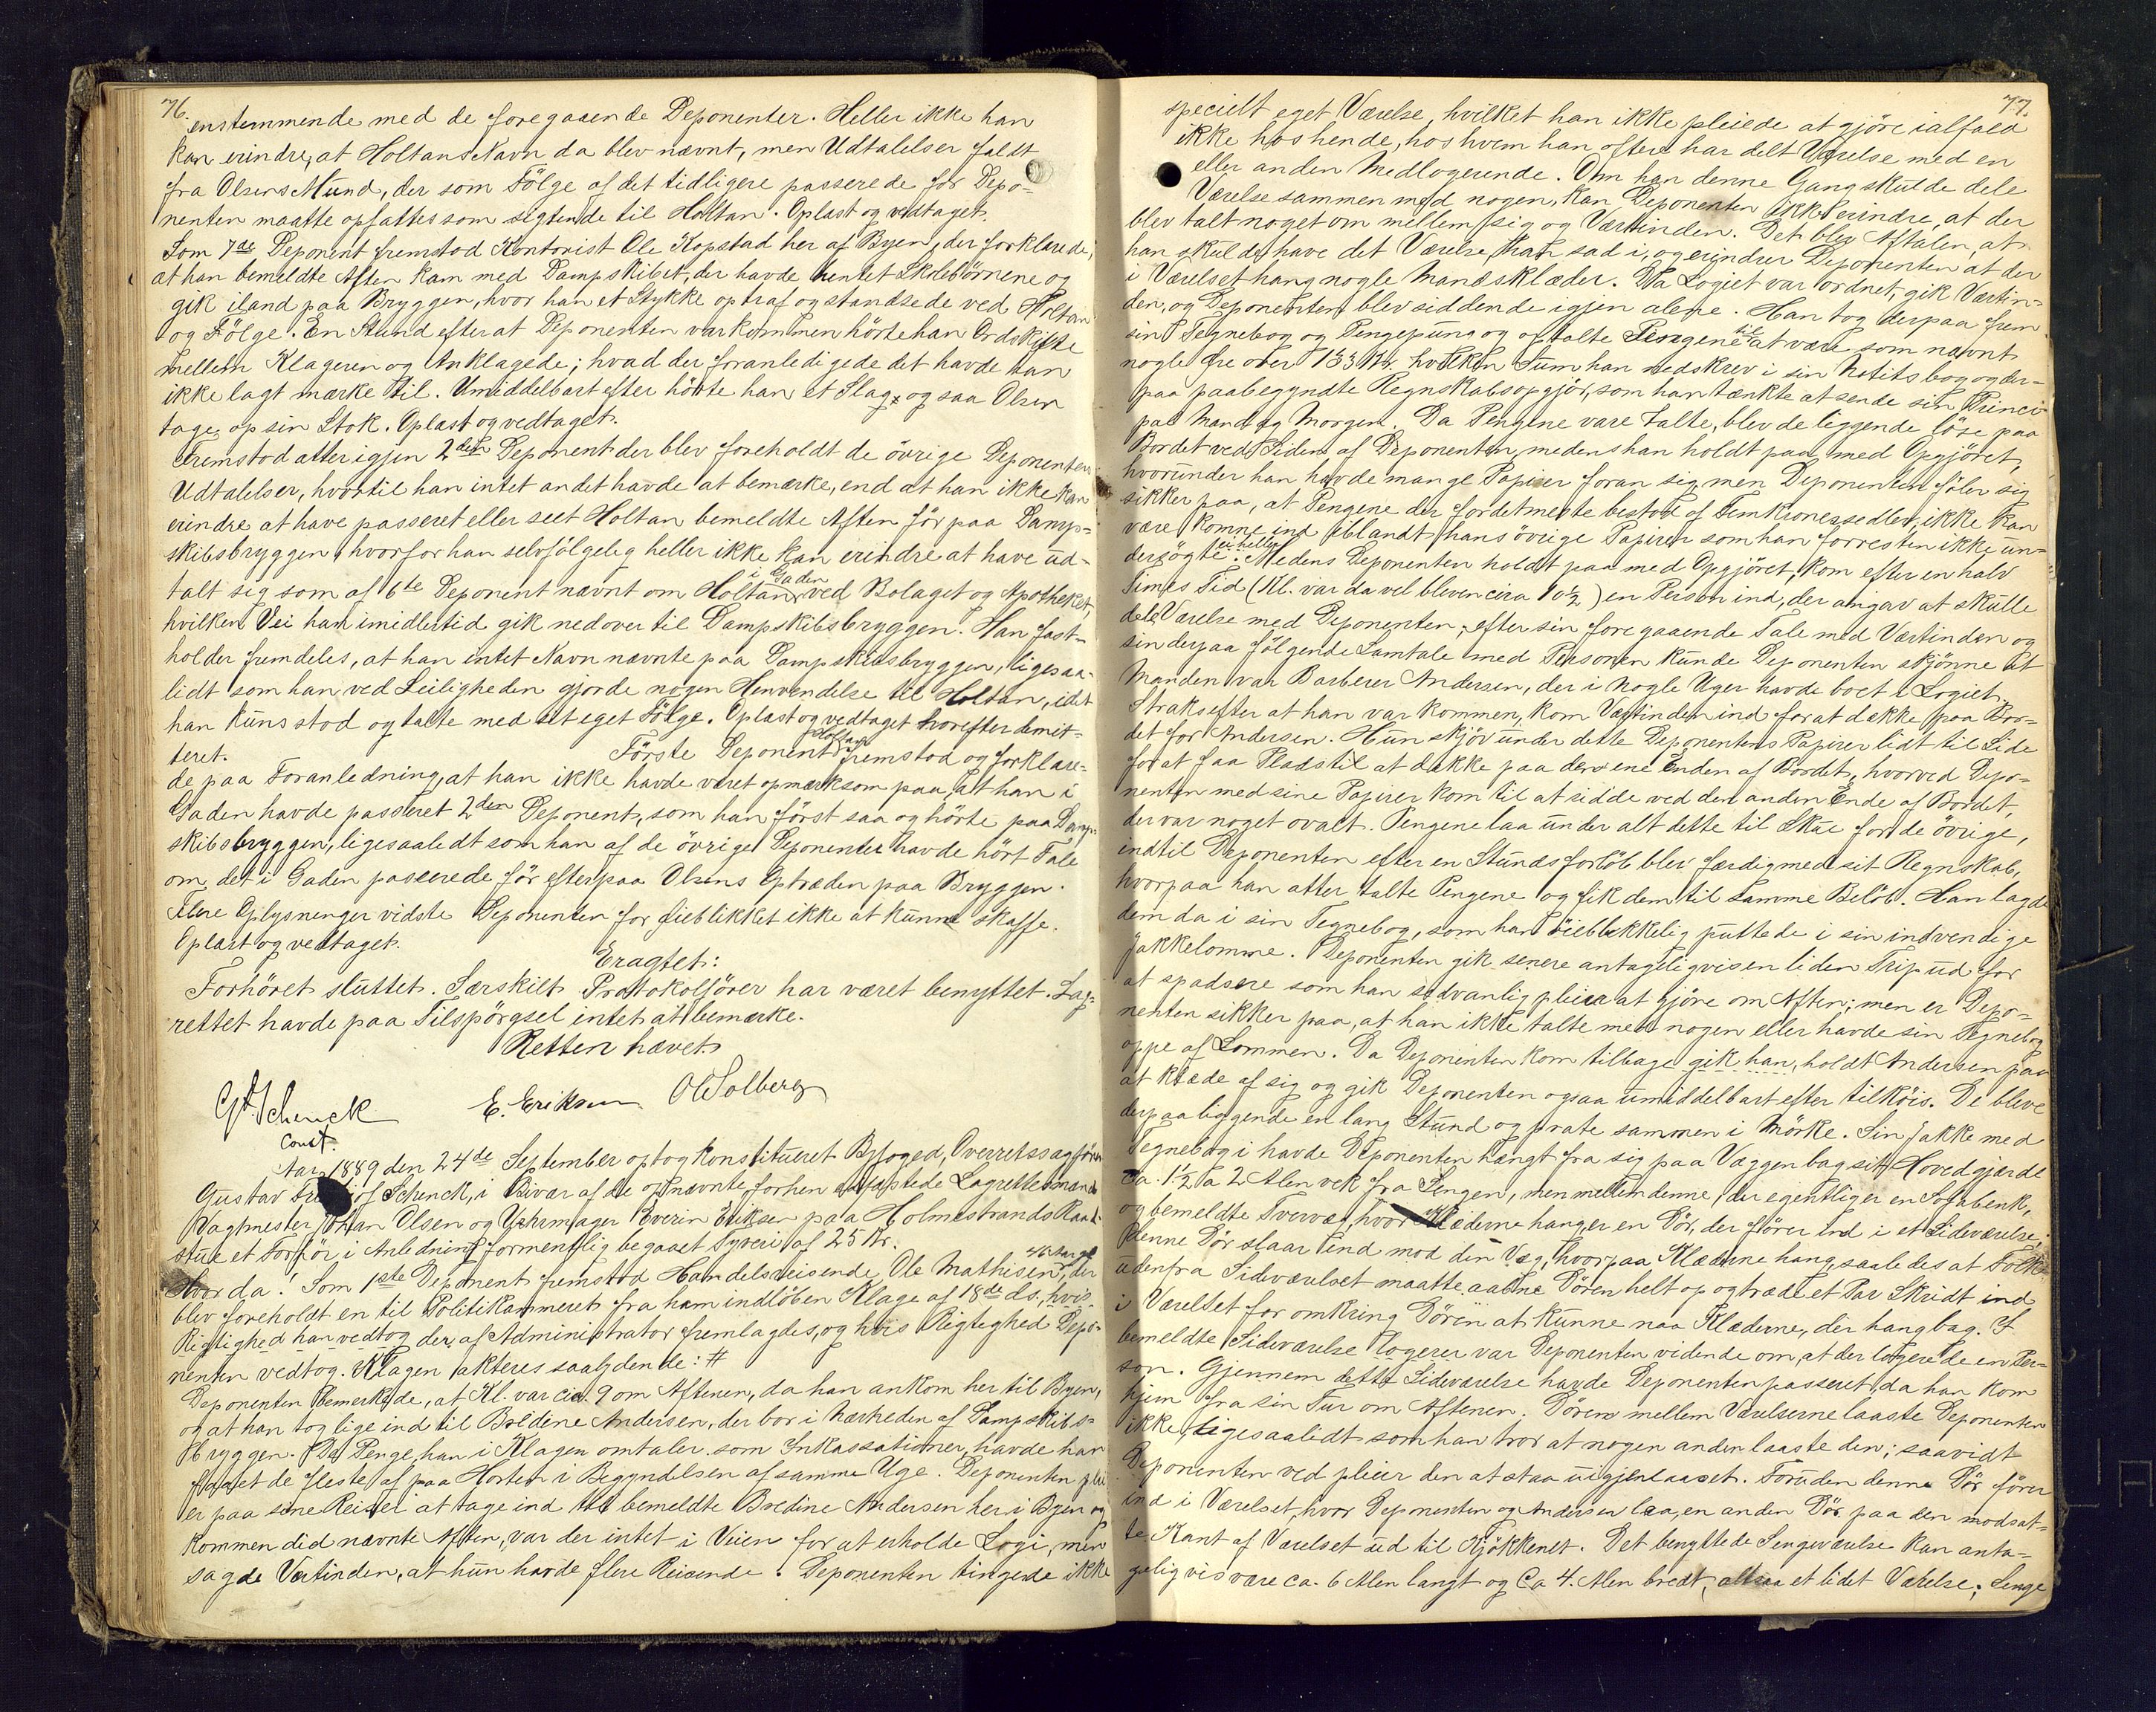 76.
enstemmende med de foregaaende Deponenter. Heller ikke han
kan erindre, at Holtans Navn da blev nævnt, men Udtalelser faldt
fra Olsens Mund, der som Fölge af det tidligere passerede för Depo-
nenten maatte opfattes som sigtende til Holtan. Oplæst og vedtaget.
Som 7de Deponent fremstod Kontorist Ole Kopstad her af Byen, der forklarede,
at han bemeldte Aften kom med Dampskibet, der havde hentet Skolebörnene og
gik iland paa Bryggen, hvor han et Stykke op traf og standsede ved Holtan
og Fölge. En Stund efter at Deponenten var kommen hörte han Ordskifte
mellem Klageren og Anklagede; hvad der foranledigede det havde han
ikke lagt mærke til. Umiddelbart efter hörte han et Slag, og saa Olsen
tage op sin Stok. Oplæst og vedtaget.
Fremstod atter igjen 2den Deponent der blev foreholdt de övrige Deponenters
Udtalelser, hvortil han intet andet havde at bemærke, end at han ikke kan
erindre at have passeret eller seet Holtan bemeldte Aften för paa Damp-
skibsbryggen, hvorfor han selvfölgelig heller ikke kan erindre at have ud-
talt sig som af 6te Deponent nævnt om Holtan i Gaden ved Bolaget og Apotheket,
hvilken Vei han imidlertid gik nedover til Dampskibsbryggen. Han fast-
holder fremdeles, at han intet Navn nævnte paa Dampskibsbryggen, ligesaa-
lidt som han ved Leiligheden gjorde nogen Henvendelse til Holtan, idet
han kuns stod og talte med sit eget Fölge. Oplæst og vedtaget hvorefter demit-
teret. Förste Deponent Holtan fremstod og forklare-
de paa Foranledning, at han ikke havde været opmærksom paa, at han i
Gaden havde passeret 2den Deponent, som han först saa og hörte paa Damp-
skibsbryggen, ligesaalidt som han af de övrige Deponenter havde hört Tale
om det i Gaden passerede för efter paa Olsens Optræden paa Bryggen.
Flere Oplysninger vidste Deponenten for Öieblikket ikke at kunne skaffe.
Oplæst og vedtaget.
Eragtet:
Forhöret sluttet. Særskilt Protokolförer har været benyttet. Lag-
rettet havde paa Tilspörgsel intet at bemærke.
Retten hævet.
G. Schenck E. Eriksen O Solberg
const.
Aar 1889 den 24de September optog konstitueret Byfoged, Overretssagförer
Gustav Schenck, i Bivær af de opnævnte forhen Lagrettesmænd
Vagtmester Johan Olsen og Uhrmager Everin Eriksen paa Holmestrands Raad-
stue et Forhör i Anledning formentlig begaaet Tyveri af 25 Kr.
Hvorda! Som 1ste Deponent fremstod Handelsreisende Ole Mathisen, der
blev foreholdt en til Politikammeret fra ham indlöben Klage af 18de ds. hvis
Rigtighed han vedtog der af Administrator fremlagdes, og hvis Rigtighed Depo-
nenten vedtog. Klagen akteres saalydende: #
Deponenten bemerkede, at Kl. var cir. 9 om Aftenen, da han ankom her til Byen,
og at han tog lige ind til Boldine Andersen, der bor i Nærheden af Dampskibs-
bryggen. De Penge, han i Klagen omtaler som Inkassationer, havde han
faaet de fleste af paa Horten i Begyndelsen af samme Uge. Deponenten plei-
er paa sine Reiser at tage ind til bemeldte Bredine Andersen her i Byen og
kommen did nævnte Aften, var der intet i Veien for at erholde Logi, men
sagde Vertinden, at hun havde flere Reisende. Deponenten tingede ikke
77.
specielt eget Værelse, hvilket han ikke pleiede at gjöre ialfald
ikke hos hende, hos hvem han oftere har delt Værelse med en
eller anden Medlogerende. Om han denne Gang skulde dele
Værelse sammen med nogen, kan Deponenten ikke erindre, at der
blev talt noget om mellem sig og Værtinden. Det blev Aftalen, at
han skulde have det Værelse, han sad i, og erindrer Deponenten at der
i Værelset hang nogle Mandsklæder. Da Logiet var ordnet, gik Værtin-
den, og Deponenten blev siddende igjen alene. Han tog derpaa frem
sin Tegnebog og Pengepung og optalte Pengene til at være som nævnt
nogle Öre over 133 Kr. hvilken Sum han nedskrev i sin Notitsbog og der-
paa paabegyndte Regnskabsopgjör, som han tænkte at sende sin Princi-
pal Mandag Morgen. Da Pengene vare talte, blev de liggende löse paa
Bordet ved Siden af Deponenten, medens han holdt paa med Opgjöret,
hvorunder han havde mange Papirer foran sig men Deponenten föler sig
sikker paa, at Pengene der fordetmeste bestod af Femkronessedler, ikke kan
være komne ind iblandt hans övrige Papirer som han forresten ikke un-
dersögte. Medens Deponenten holdt paa med Opgjöret, kom efter en halv
Times Tid (Kl. var da vel bleven circa 10½) en Person ind, der angav at skulle
dele Værelse med Deponenten; efter sin foregaaende Tale med Værtinden og
sin derpaa fölgende Samtale med Personen kunde Deponenten skjönne at
Manden var Barberer Andersen, der i nogle Uger havde boet i Logiet.
Straks efter at han var kommen, kom Værtinden ind for at dække paa Bor-
det for Andersen. Hun skjöv under dette Deponentens Papirer lidt til Side
for at faa Plads til at dække paa den ene Enden af Bordet, hvorved Depo-
nenten med sine Papirer kom til at sidde ved den anden Ende af Bordet,
der var noget ovalt. Pengene laa under alt dette til Skue for de övrige,
indtil Deponenten efter en Stunds forlöb blev færdig med sit Regnskab,
hvorpaa han atter talte Pengene og fik dem til samme Belöb. Han lagde
dem da i sin Tegnebog, som han öieblikkelig puttede i sin indvendige
Jakkelomme. Deponenten gik senere antageligvis en liden Trip ud for
at spadsere som han sædvanlig pleier at gjöre om Aften; men er Depo-
nenten sikker paa, at han ikke talte med nogen eller havde sin Tegnebog
oppe af Lommen. Da Deponenten kom tilbage gik han, holdt Andersen paa
at klæde af sig og gik Deponenten ogsaa umiddelbart efter tilköis. De bleve
derpaa liggende en lang Stund og prate sammen i Mörke. Sin Jakke med
Tegnebog i havde Deponenten hængt fra sig paa Væggen bag sit Hovedgjærde
ca. 1½ à 2 Alen vek fra Sengen, men mellem denne, der egentlig er en Sofabenk,
og bemeldte Tvervæg, hvor Klæderne hang er en Dör, der förer ind i et Sideværelse;
denne Dör slaar ind mod den Væg, hvorpaa Klæderne hang, saaledes at Folk
udenfra Sideværelset maatte aabne Dören helt op og træde et Par Skridt ind
i Værelset for omkring Dören at kunne naa Klæderne, der hang bag. I
bemeldte Sideværelse logerer var Deponenten vidende om, at der logerede en Per-
son. Gjennem dette Sideværelse havde Deponenten passeret, da han kom
hjem fra sin Tur om Aftenen. Dören mellem Værelserne laaste Deponenten
ikke, ligesaalidt som han tror at nogen anden laaste den; saavidt
Deponenten ved pleier den at staa uigjenlaaset. Foruden denne Dör förer
ind i Værelset, hvor Deponenten og Andersen laa, en anden Dör paa den modsat-
te Kant af Værelset ud til Kjökkenet. Det benyttede Sengeværelse kan anta-
gelig vis være ca. 6 Alen langt og ca 4. Alen bredt, altsaa et lidet Værelse; Senge